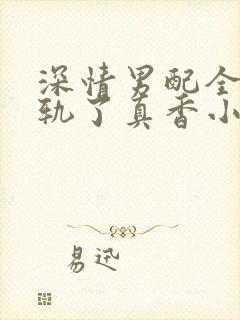 深情男配全
轨了真香小
易迅